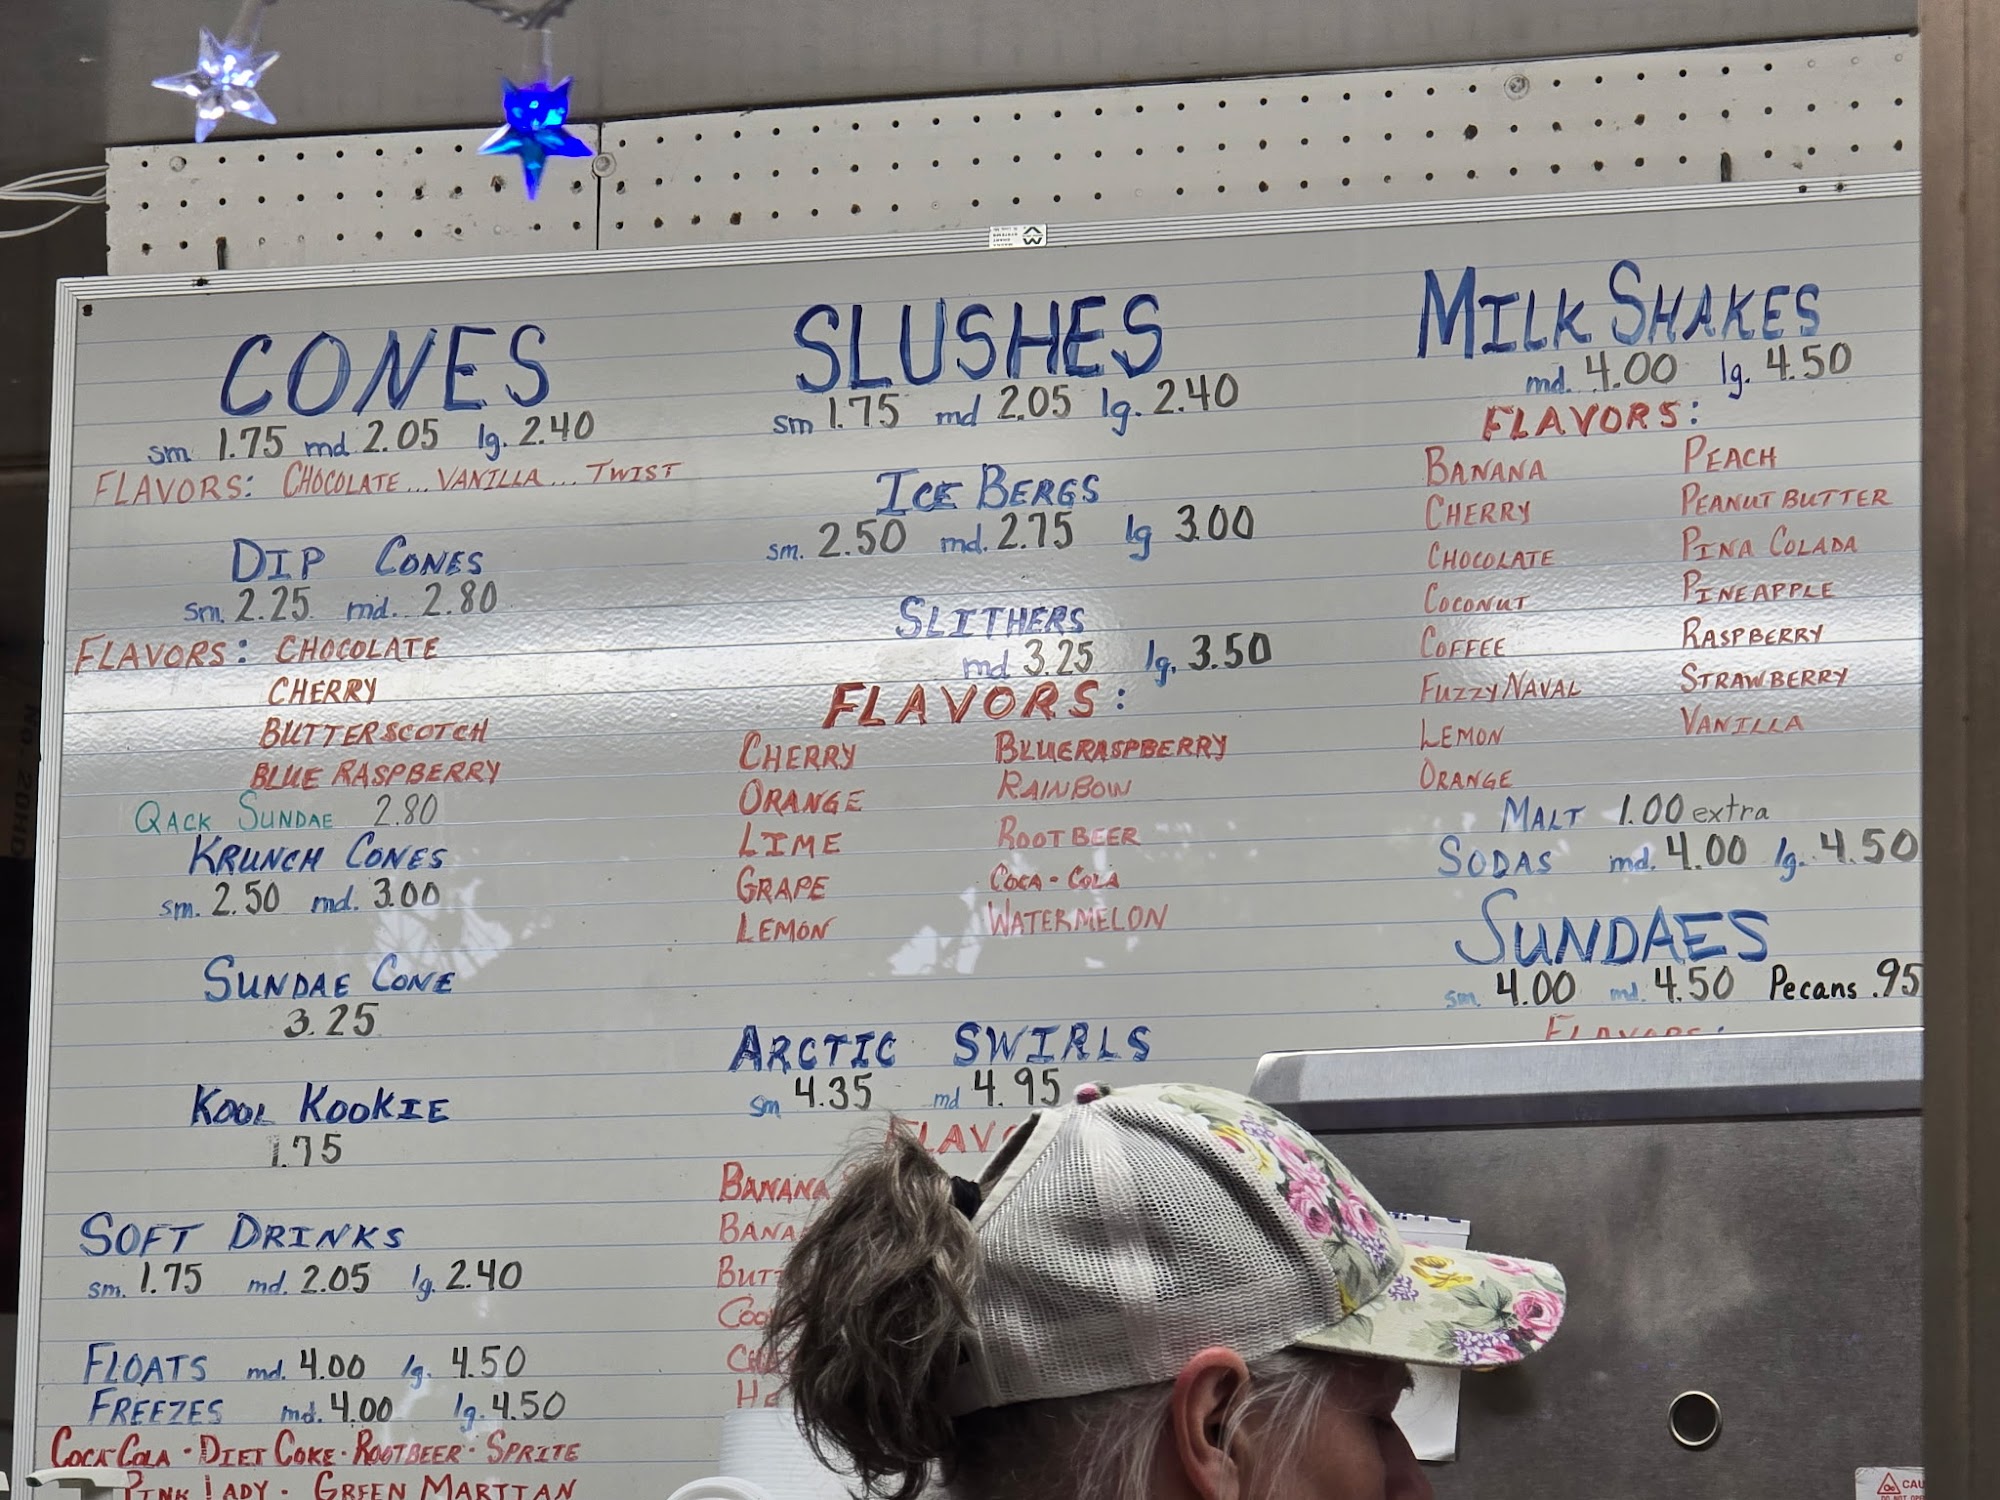 CONES
sm 1.75 md 2.05 lg. 2.40
FLAVORS: CHOCOLATE... VANILLA... TWIST
DIP CONES
sm. 2.25 md. 2.80
FLAVORS: CHOCOLATE
CHERRY
BUTTERSCOTCH
BLUE RASPBERRY
QACK SUNDAE 2.80
KRUNCH CONES
sm. 2.50 md. 3.00
SUNDAE CONE
3.25
KOOL KOOKIE
1.75
SOFT DRINKS
sm. 1.75 md. 2.05 lg. 2.40
FLOATS md. 4.00 lg. 4.50
FREEZES md. 4.00 lg. 4.50
COCA COLA · DIET COKE · ROOTBEER · SPRITE
PINK LADY · GREEN MARTIAN
SLUSHES
sm 1.75 md 2.05 lg. 2.40
ICE BERGS
sm. 2.50 md. 2.75 lg 3.00
SLITHERS
md 3.25 lg. 3.50
FLAVORS:
CHERRY BLUERASPBERRY
ORANGE RAINBOW
LIME ROOT BEER
GRAPE COCA-COLA
LEMON WATERMELON
ARCTIC SWIRLS
sm 4.35 md 4.95
FLAVO
BANANA
BANA
BUTT
COO
CH
HE
MILK SHAKES
md. 4.00 lg. 4.50
FLAVORS:
BANANA PEACH
CHERRY PEANUT BUTTER
CHOCOLATE PINA COLADA
COCONUT PINEAPPLE
COFFEE RASPBERRY
FUZZY NAVAL STRAWBERRY
LEMON VANILLA
ORANGE
MALT 1.00 extra
SODAS md. 4.00 lg. 4.50
SUNDAES
sm. 4.00 md. 4.50 Pecans .95
FLAVORS:
CAU